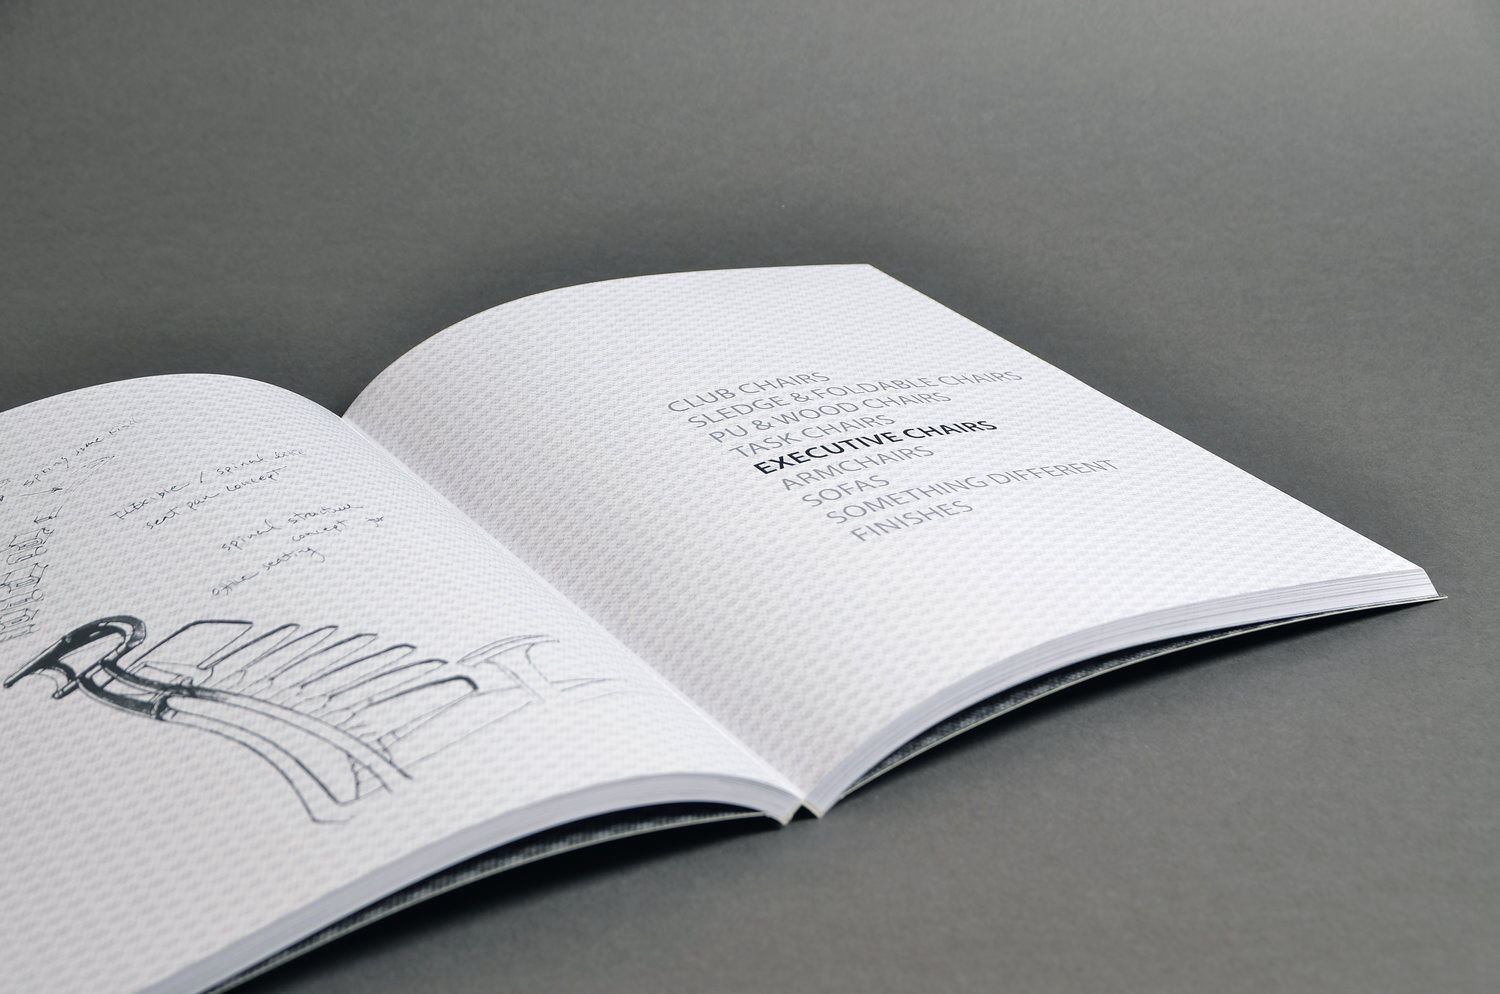 spring
flexible / spinal like
seat pan concept
spinal structure
concept for
office seating
CLUB CHAIRS
SLEDGE & FOLDABLE CHAIRS
PU & WOOD CHAIRS
TASK CHAIRS
EXECUTIVE CHAIRS
ARMCHAIRS
SOFAS
SOMETHING DIFFERENT
FINISHES